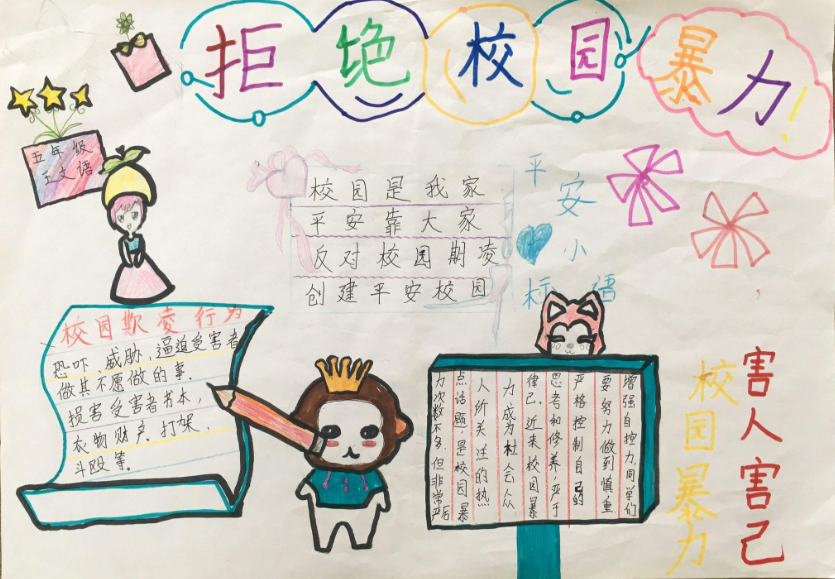 拒绝校园暴力!
五年级
王文语
校园是我家
平安靠大家
反对校园期凌
创建平安校园
平安小标语
校园欺凌行为
恐吓、威胁,逼迫受害者
做其不愿做的事.
损害受害者书本,
衣物财产.打架.
斗殴等。
增强自控力,同学们
要努力做到慎重
严格控制自己的
思考和修养,严于
律己.近来校园暴
力成为社会从
人所关注的热
点话题是校园暴
力次数不多.但非常严
害人害己
校园暴力